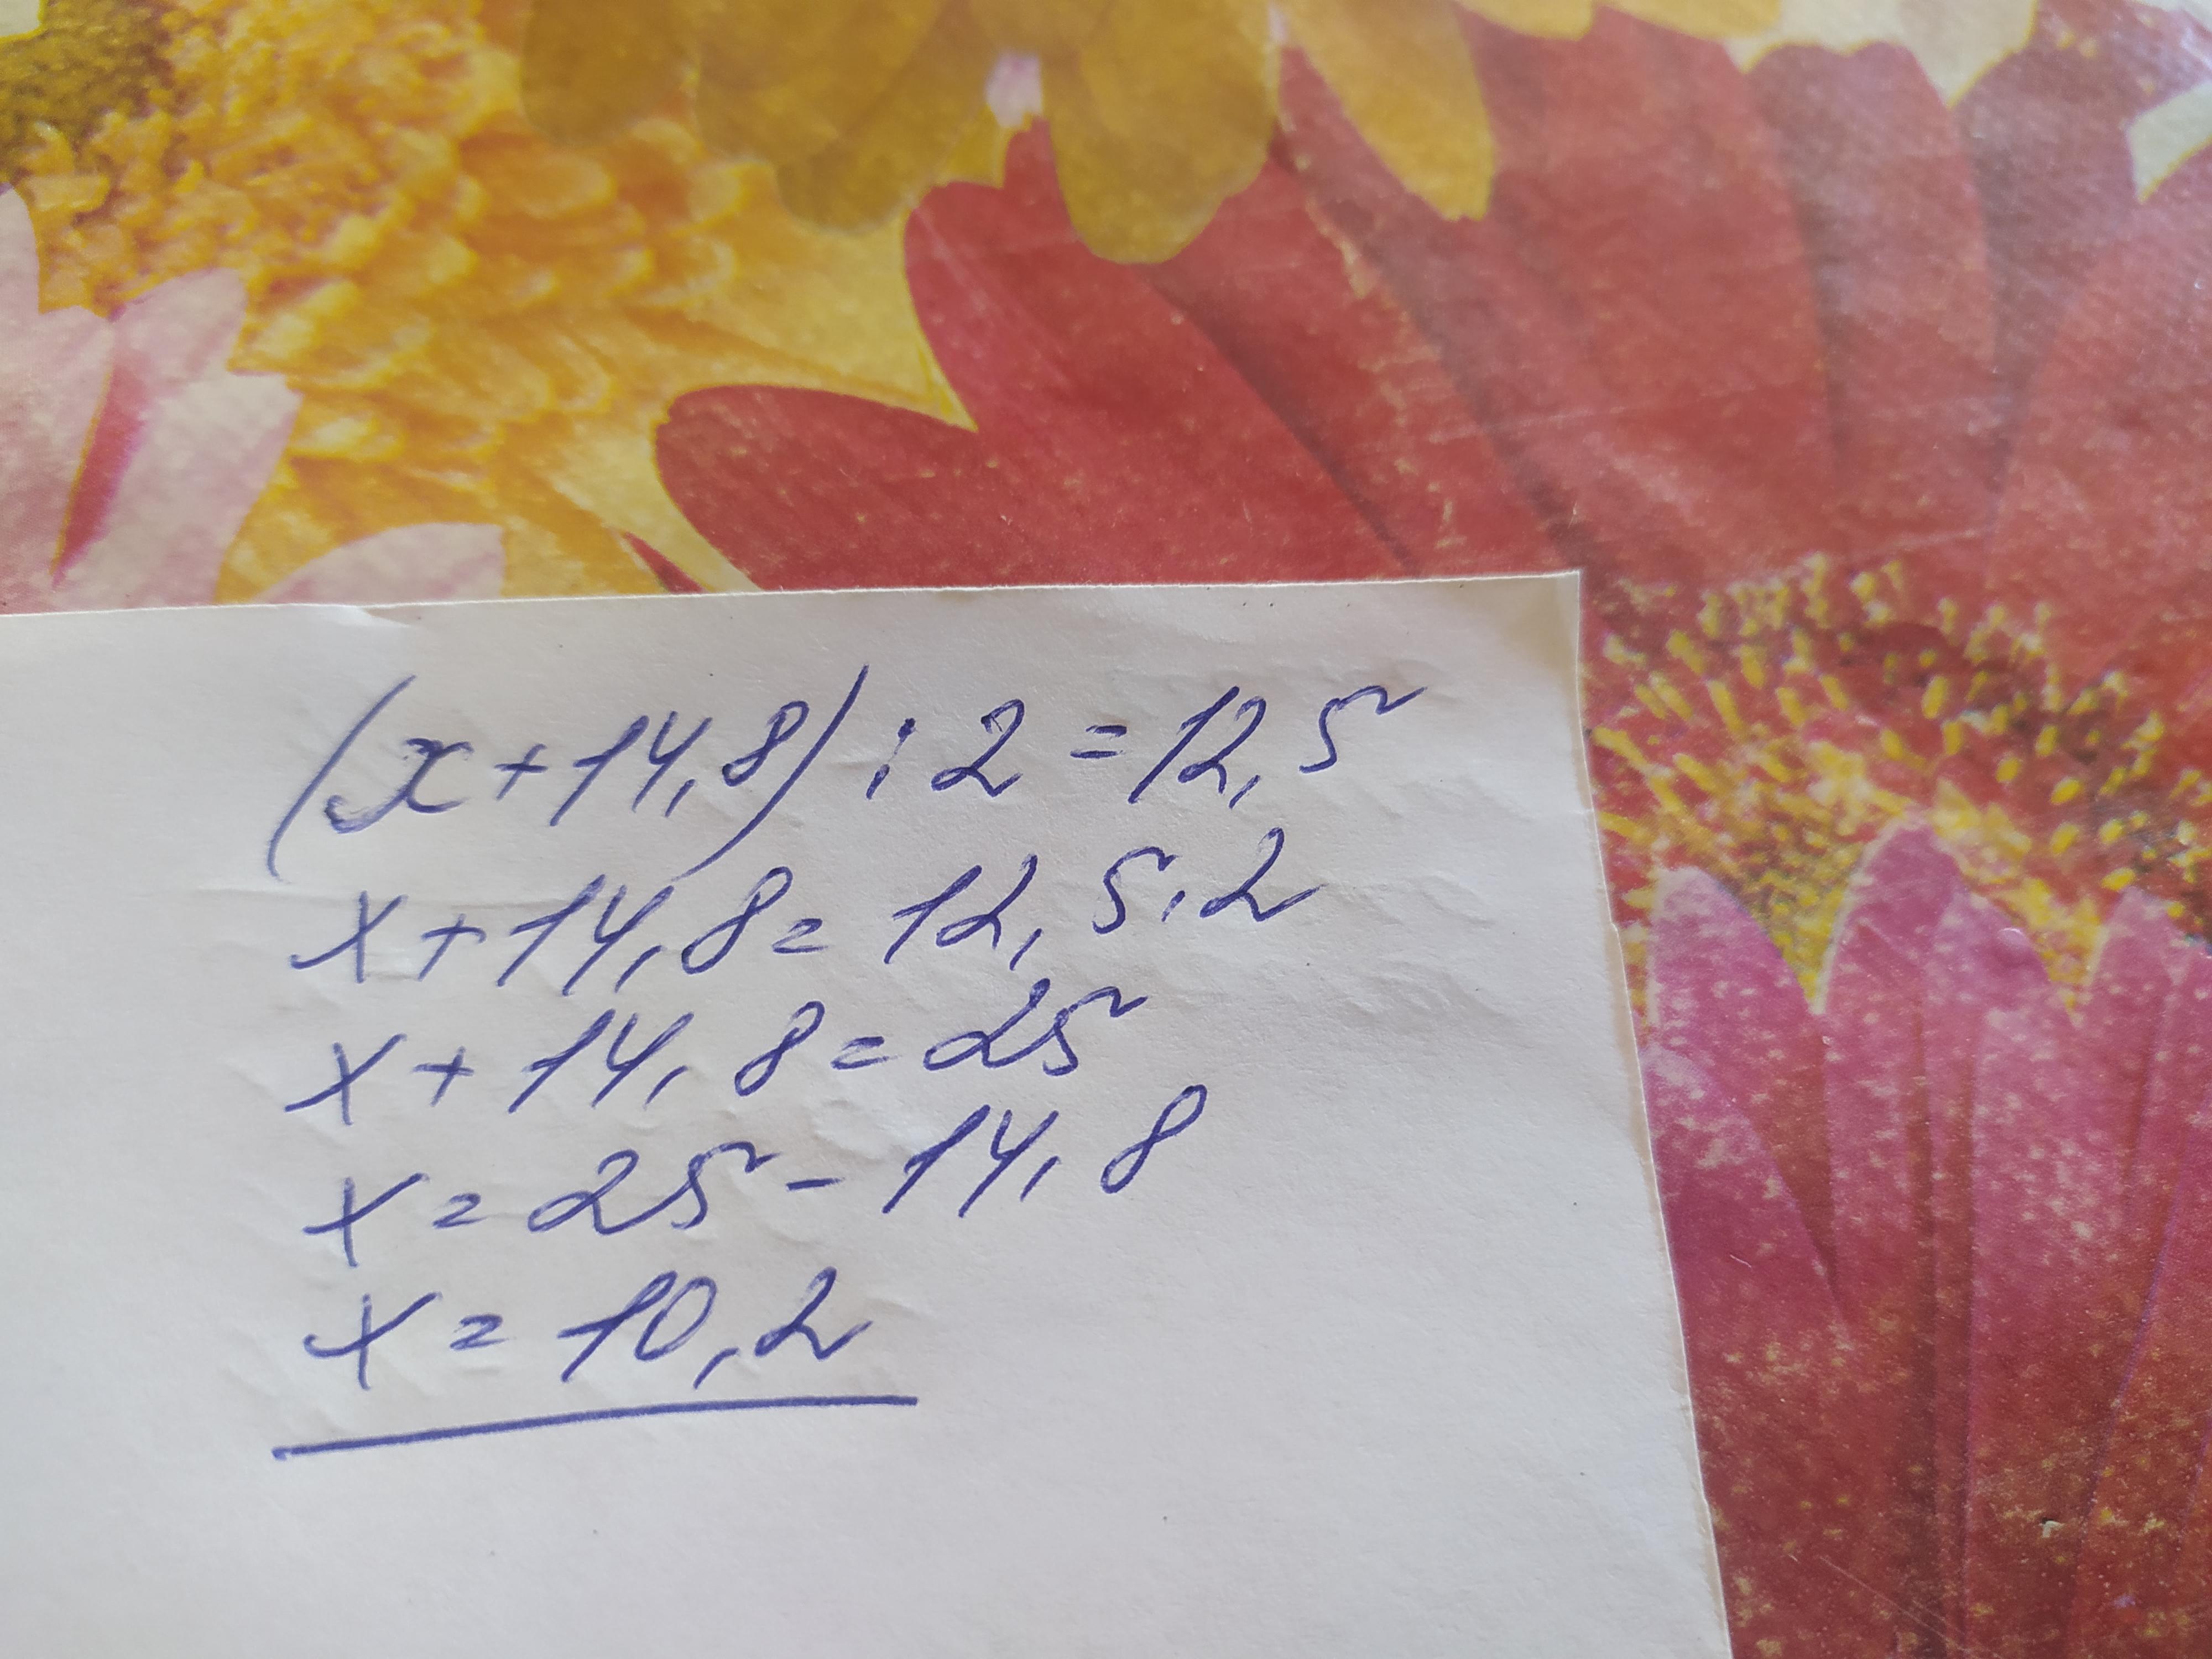 (x+14,8):2=12,5
x+14,8=12,5·2
x+14,8=25
x=25-14,8
x=10,2